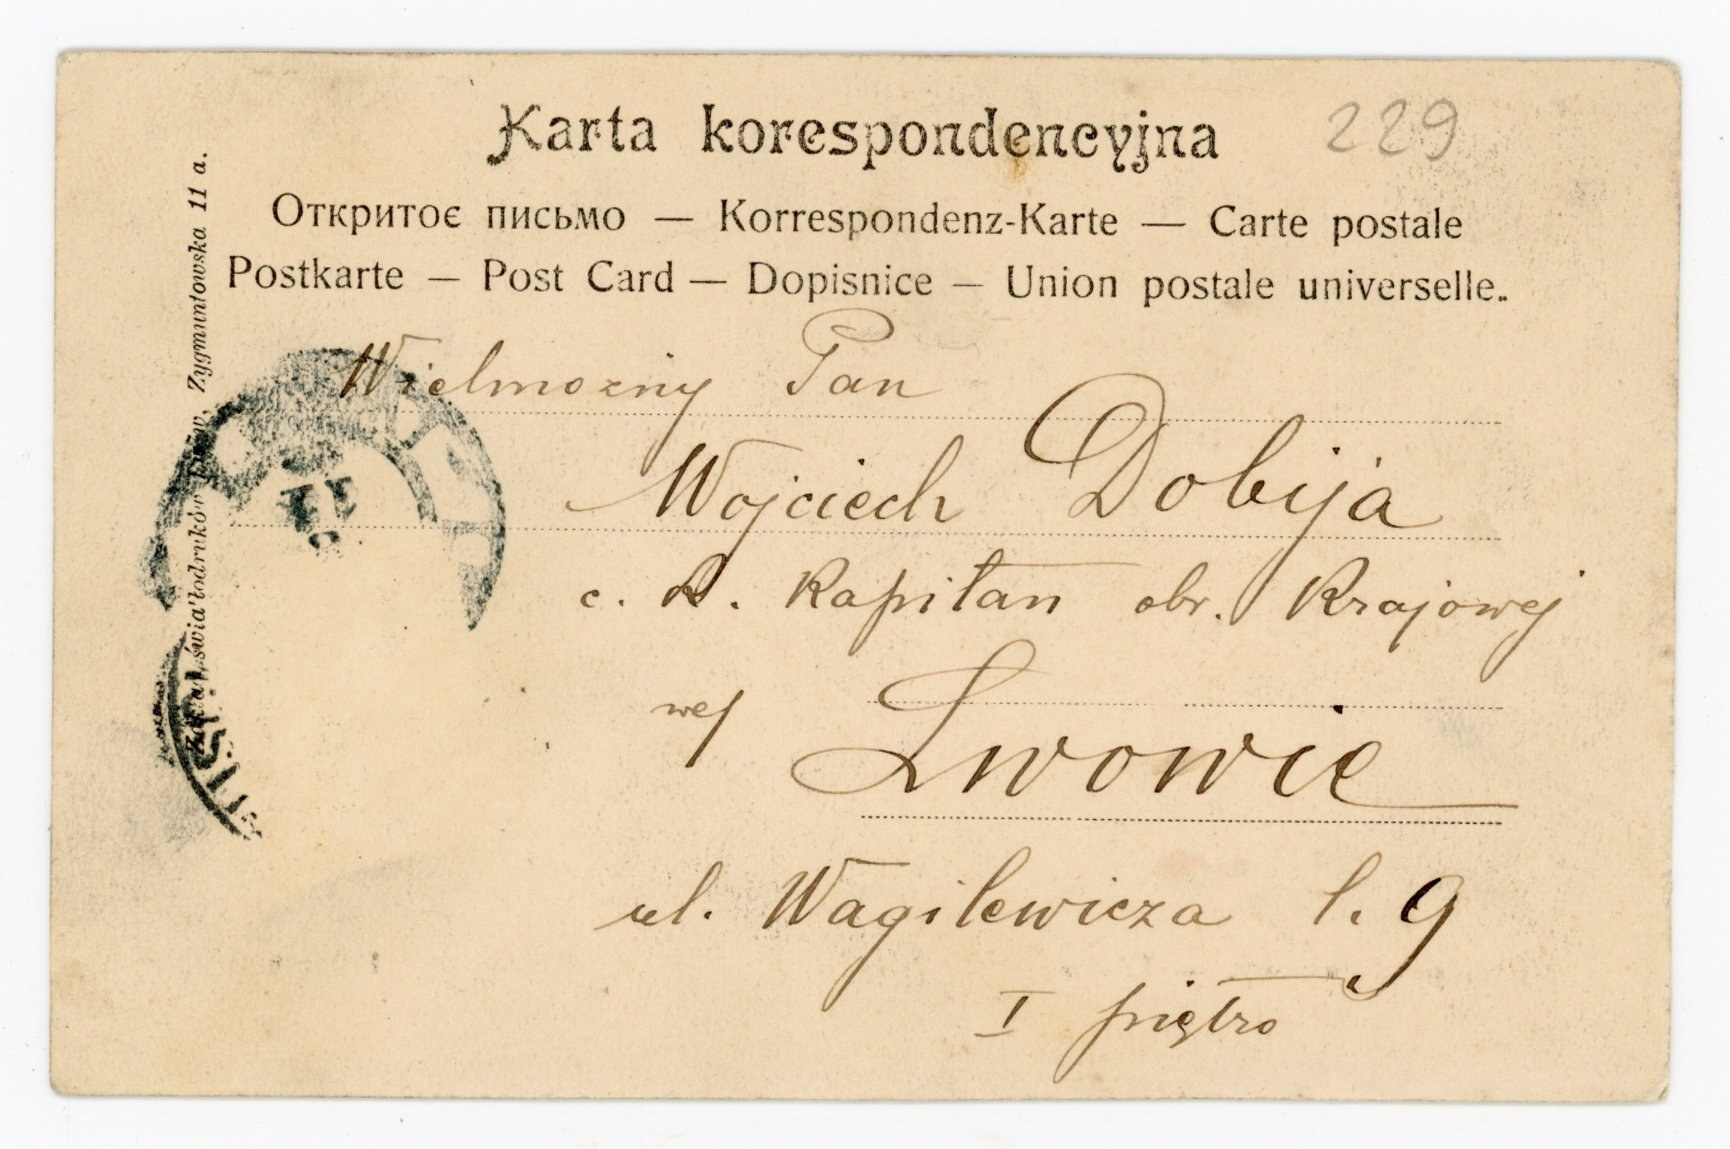 Karta korespondencyjna
229
Откритоє письмо — Korrespondenz-Karte — Carte postale
Postkarte — Post Card — Dopisnice — Union postale universelle.
Wielmozny Pan
Wojciech Dobija
c. k. Kapitan obr. Krajowej
wej Lwowie
ul. Wagilewicza l. 9
I piętro
11
światłodruków Lwów, Zygmuntowska 11 a.